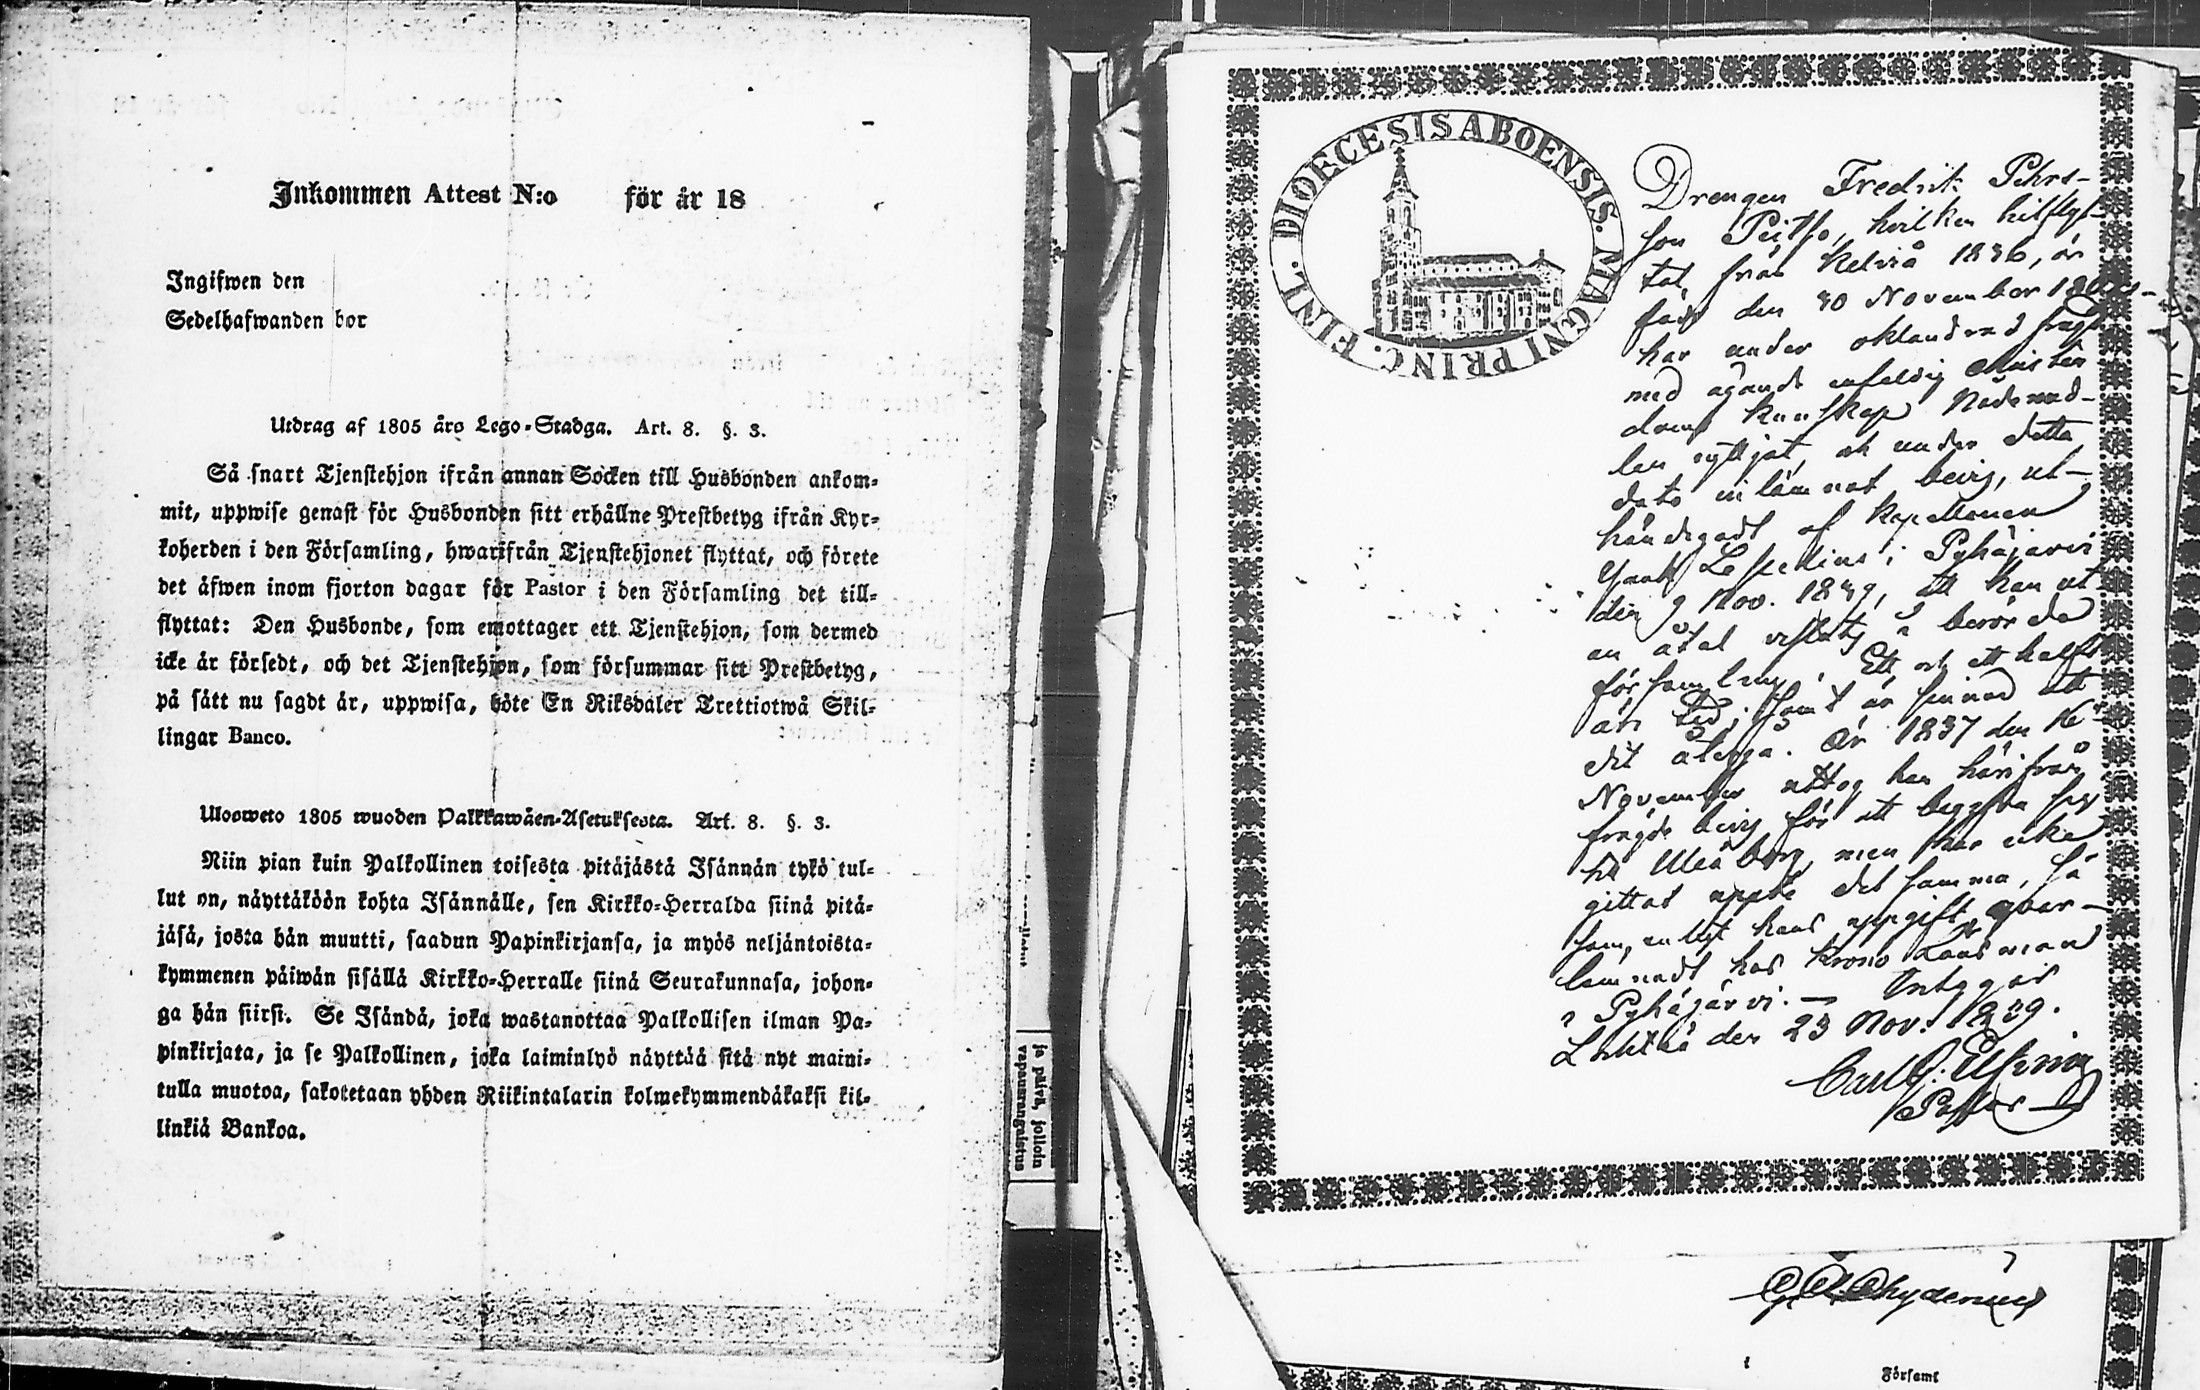 Inkommen Attest N:o för år 18
Ingifwen den
Sedelhafwanden bor
Utdrag af 1805 års Lego-Stadga. Art. 8. §. 3.
Så snart Tjenstehjon ifrån annan Socken till Husbonden ankom-
mit, uppwise genast för Husbonden sitt erhållne Prestbetyg ifrån Kyr-
koherden i den Församling, hwarifrån Tjenstehjonet flyttat, och förete
det äfwen inom fjorton dagar för Pastor i den Församling det till-
flyttat: Den Husbonde, som emottager ett Tjenstehjon, som dermed
icke är försedt, och det Tjenstehjon, som försummar sitt Prestbetyg,
på sätt nu sagdt är, uppwisa, böte En Riksdaler Trettiotwå Skil-
lingar Banco.
Uloosweto 1805 wuoden Palkkawäen-Asetuksesta. Art. 8. §. 3.
Niin pian kuin Palkollinen toisesta pitäjästä Isännän tykö tul-
lut on, näyttäköön kohta Isännälle, sen Kirkko-Herralda siinä pitä-
jäsä, josta hän muutti, saadun Papinkirjansa, ja myös neljäntoista-
kymmenen päiwän sisällä Kirkko-Herralle siinä Seurakunnasa, johon-
ga hän siirsi. Se Isändä, joka wastanottaa Palkollisen ilman Pa-
pinkirjata, ja se Palkollinen, joka laiminlyö näyttää sitä nyt maini-
tulla muotoa, sakotetaan yhden Riikintalarin kolmekymmendäkaksi kil-
linkiä Bankoa.
ja päivä, jolloin
vapausrangaistus
DIOECESIS ABOENSIS. MAGNI PRINC. FINL.
Drengen Fredrik Pehrs-
son Peitso, hvilken hitflyt-
tat från Kelviå 1836, är
född den 30 November
har under oklandrad frägd
med ägande enfaldig Christen
doms kunskap Nådemed-
len nyttjat och under detta
dato inlämnat bevis, ut-
händigadt af Kapellanen
i Pyhäjärvi
den 9 Nov. 1839, att han utan
åtal vistats i berörde
församling Ett och ett halft
års tid, samt är sinnad att
dit återgå. År 1837 den 16
November uttog han härifrån
frägde bevis för att begifva sig
till Uleåborg, men har icke
gittat uppte det samma, så
som, enligt hans uppgift, qvar-
lemnadt hos Krono Länsman
i Pyhäjärvi. — Intygar
Lochteå den 23 Nov. 1839.
Carl J. Elfving
Pastor
Chydenius
Församl